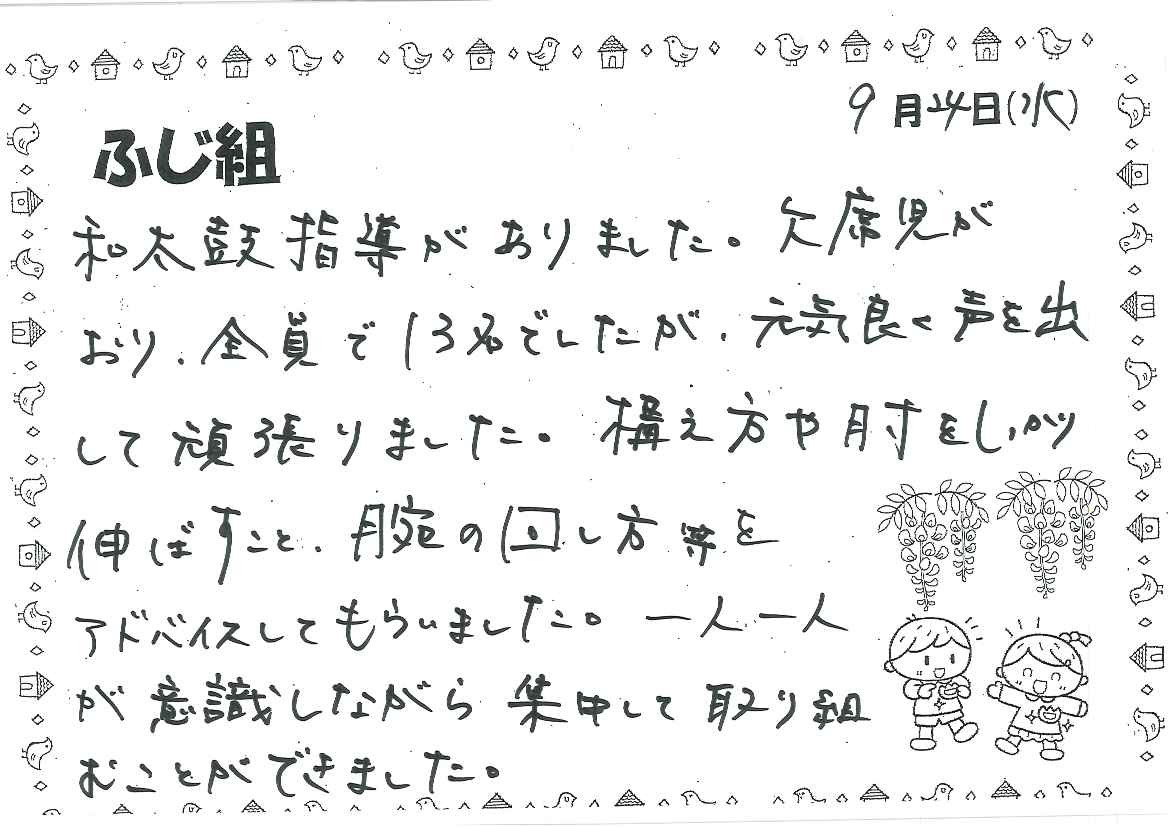 9月24日(水)
ふじ組
和太鼓指導がありました。欠席児が
おり、全員で13名でしたが、元気良く声を出
して頑張りました。構え方や肘をしっかり
伸ばすこと、腕の回し方等を
アドバイスしてもらいました。一人一人
が意識しながら集中して取り組
むことができました。